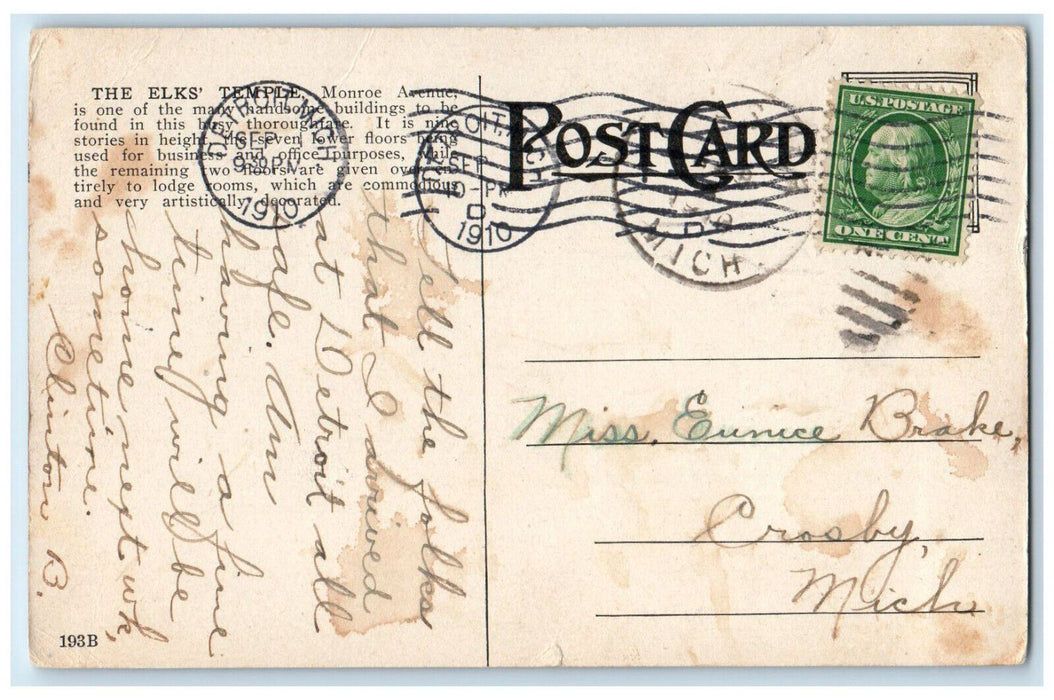 THE ELKS' TEMPLE, Monroe Avenue,
is one of the many handsome buildings to be
found in this busy thoroughfare. It is nine
stories in height, the seven lower floors being
used for business and office purposes, while
the remaining two floors are given over en-
tirely to lodge rooms, which are commodious
and very artistically decorated.
DETROIT, MICH
SEP
9-30PM
1910
DETROIT, MICH
SEP
-PM
D
1910
POST CARD
MICH
U.S. POSTAGE
ONE CENT
Tell the folks
that I arrived
at Detroit all
safe. Am
having a fine
time, will be
home next wk,
sometime.
Clinton B.
Miss. Eunice Brake,
Crosby,
Mich
193B